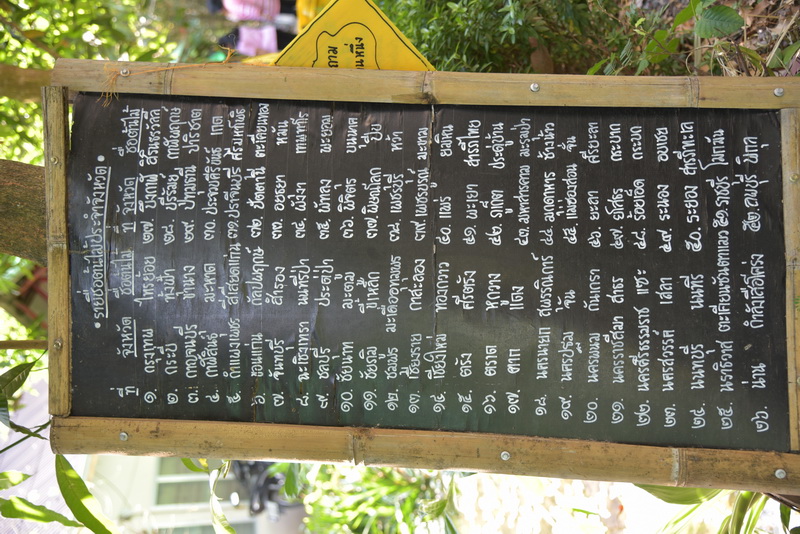 รายชื่อต้นไม้ประจำจังหวัด
ที่ จังหวัด ชื่อต้นไม้ ที่ จังหวัด ชื่อต้นไม้
๑. กรุงเทพ ไทรย้อย ๒๗ บึงกาฬ สิรินธรวัลลี
๒. กระบี่ ๒๘ บุรีรัมย์ กาฬพฤกษ์
๓. กาญจนบุรี ขานาง ๒๙ ปทุมธานี ปาริชาต
๔. กาฬสินธุ์ มะหาด ๓๐. ประจวบคีรีขันธ์ เกด
๕. กำแพงเพชร สีเสียดแก่น ๓๑. ปราจีนบุรี ศรีมหาโพธิ์
๖ ขอนแก่น กัลปพฤกษ์ ๓๒. ปัตตานี ตะเคียนทอง
๗. จันทบุรี สำรอง ๓๓. อยุธยา หมัน
๘. ฉะเชิงเทรา นนทรีป่า ๓๔. พังงา เทพทาโร
๙. ชลบุรี ประดู่ป่า ๓๕ พัทลุง พะยอม
๑๐. ชัยนาท มะตูม ๓๖ พิจิตร บุนนาค
๑๑. ชัยภูมิ ขี้เหล็ก ๓๗ พิษณุโลก ปีบ
๑๒. ชุมพร มะเดื่ออุทุมพร ๓๘ เพชรบุรี หว้า
๑๓ เชียงราย กาสะลอง ๓๙ เพชรบูรณ์ มะขาม
๑๔ เชียงใหม่ ทองกวาว ๔๐. แพร่ ยมหิน
๑๕. ตรัง ศรีตรัง ๔๑ พะเยา สารภีไทย
๑๖ ตราด หูกวาง ๔๒ ภูเก็ต ประดู่บ้าน
๑๗ ตาก แดง ๔๓ มหาสารคาม มะรุมป่า
๑๘. นครนายก สุพรรณิการ์ ๔๔ มุกดาหาร ช้างน้าว
๑๙. นครปฐม จัน ๔๕ แม่ฮ่องสอน จั่น
๒๐. นครพนม กันเกรา ๔๖ ยะลา ศรียะลา
๒๑. นครราชสีมา สาธร ๔๗ ยโสธร กระบาก
๒๒. นครศรีธรรมราช แซะ ๔๘ ร้อยเอ็ด กระบก
๒๓. นครสวรรค์ เสลา ๔๙ ระนอง อบเชย
๒๔. นนทบุรี นนทรี ๕๐. ระยอง สารภีทะเล
๒๕. นราธิวาส ตะเคียนชันตาแมว ๕๑ ราชบุรี โมกมัน
๒๖. น่าน กำลังเสือโคร่ง ๕๒ ลพบุรี พิกุล